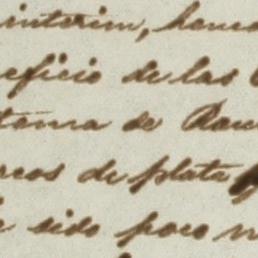 interim, han
eficio de las
tama de Rau
rcos de plata
sido poco n